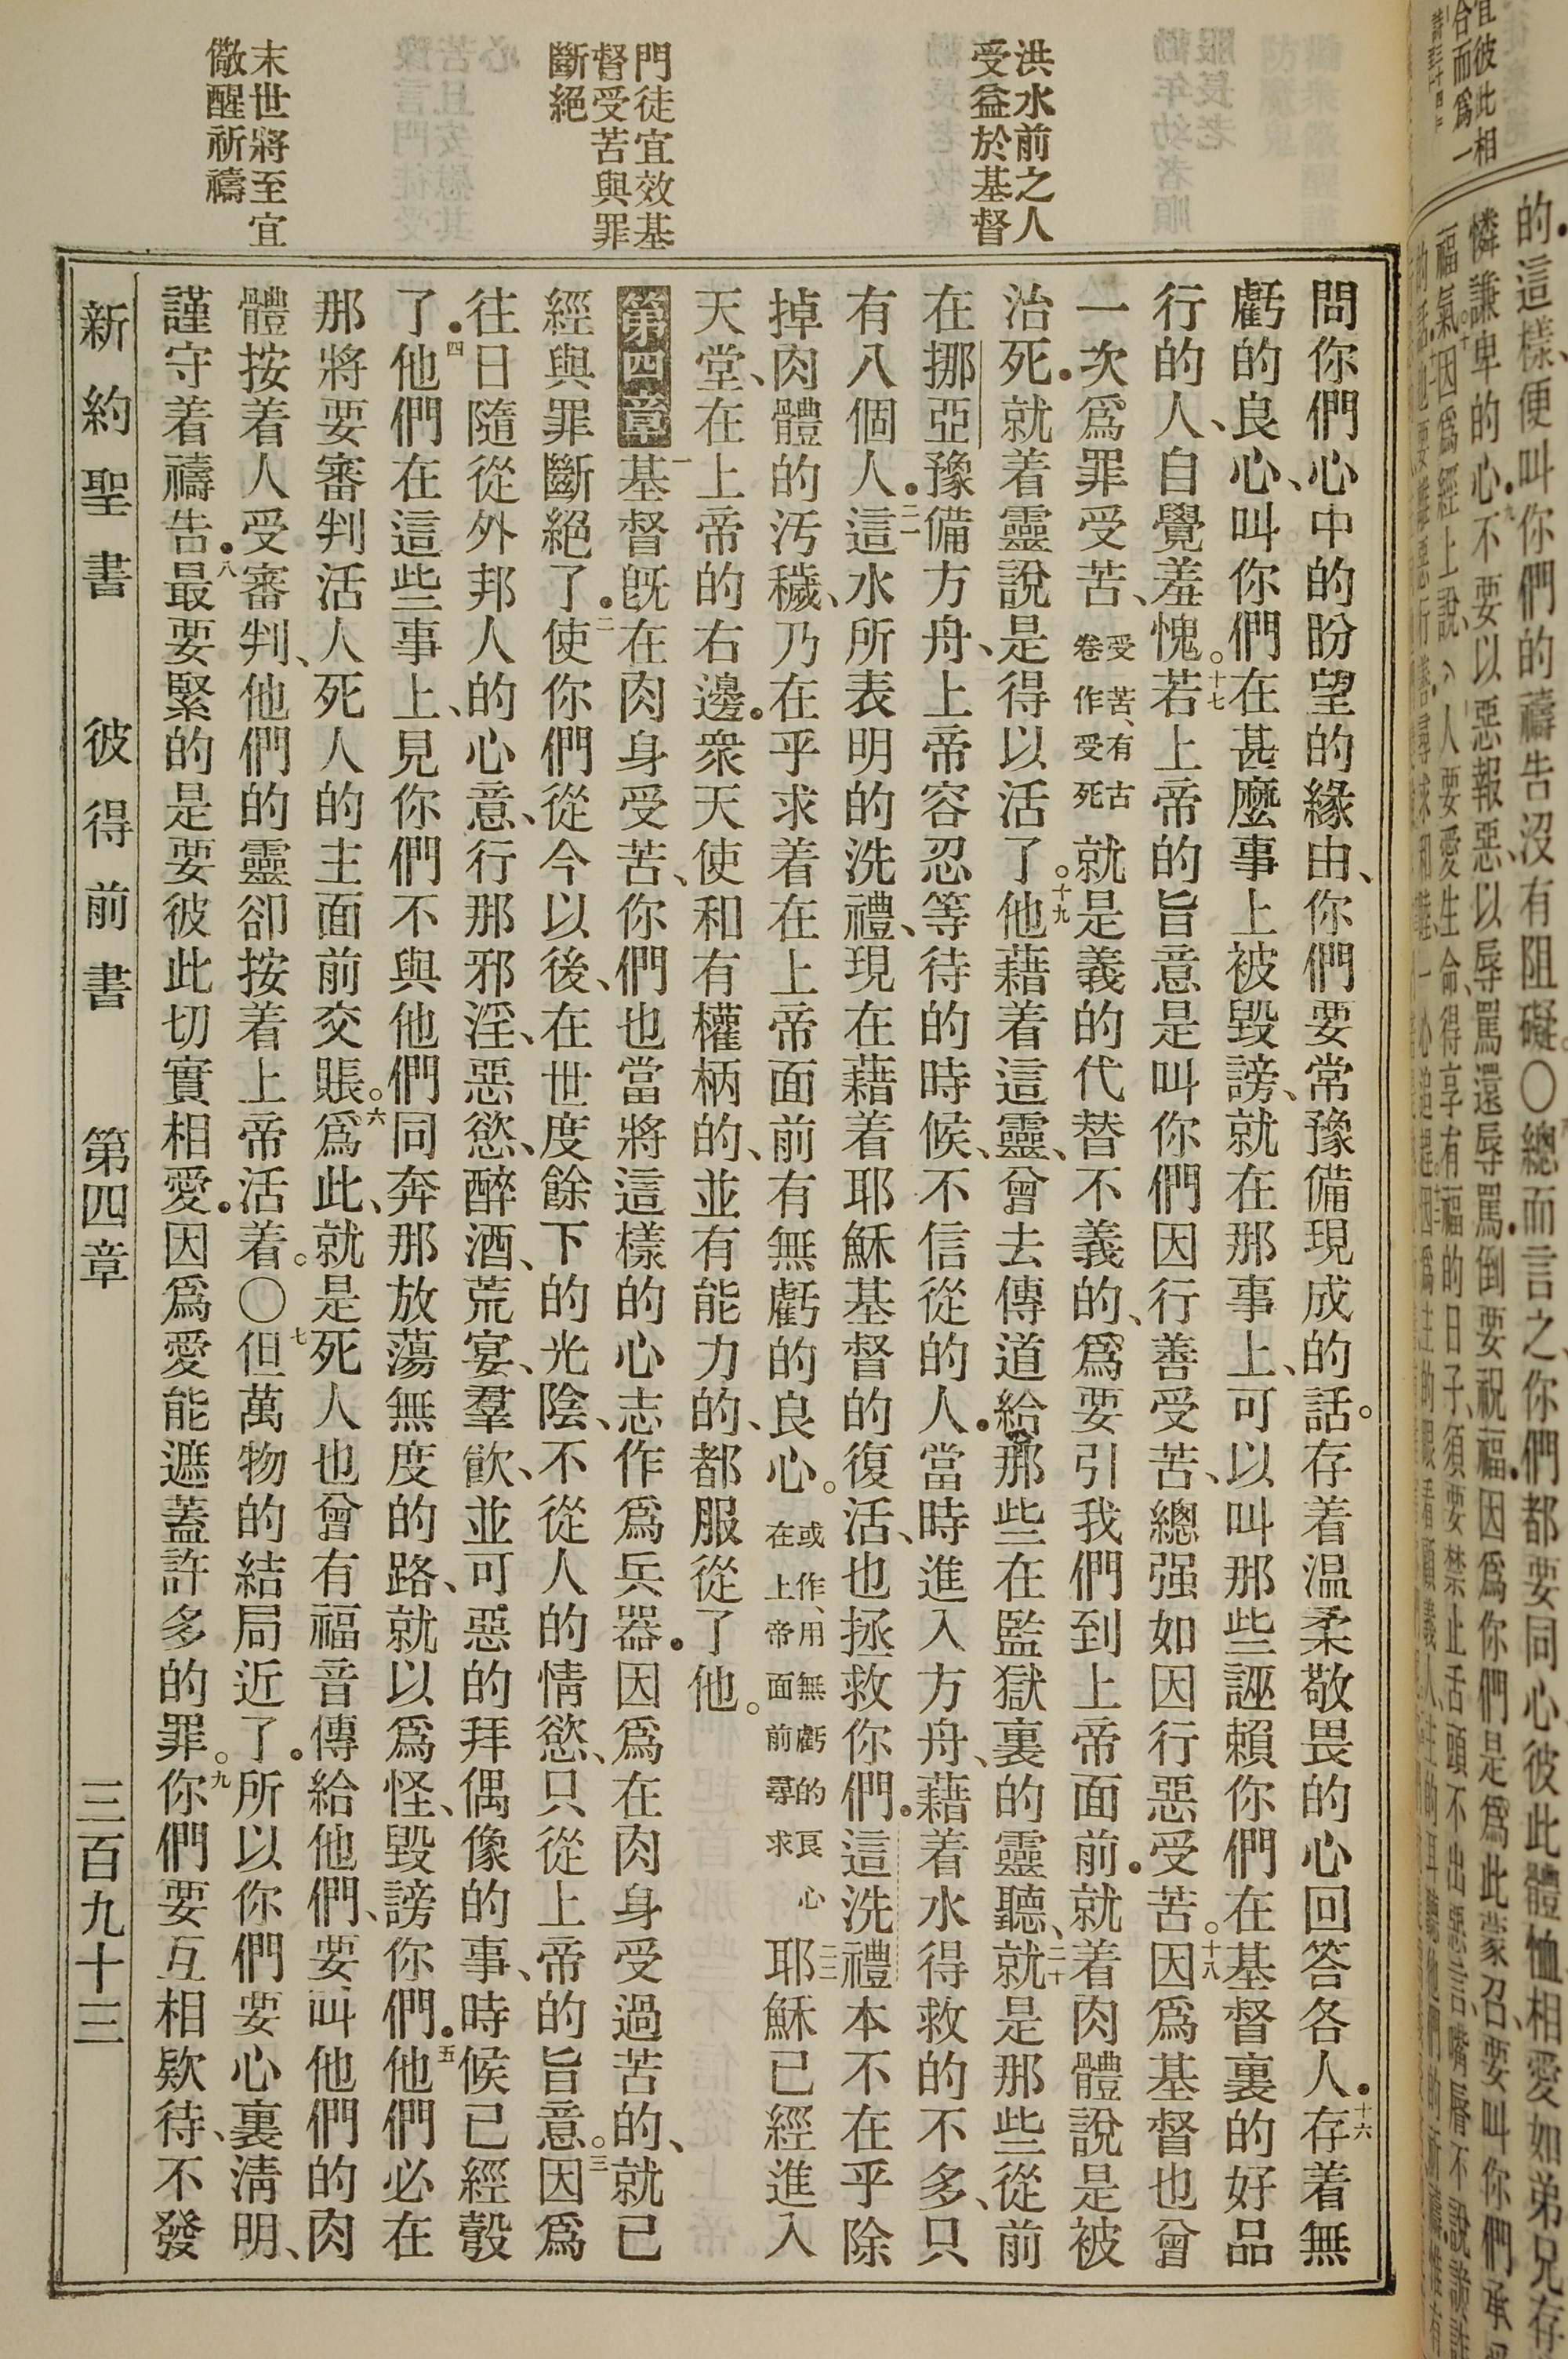 洪水前之人
受益於基督
門徒宜效基
督受苦與罪
斷絕
末世將至宜
儆醒祈禱
問你們心中的盼望的緣由、你們要常豫備現成的話。存着温柔敬畏的心回答各人．十六存着無
虧的良心、叫你們在甚麼事上被毀謗、就在那事上、可以叫那些誣賴你們在基督裏的好品
行的人、自覺羞愧。十七若上帝的旨意是叫你們因行善受苦、總强如因行惡受苦。十八因爲基督也曾
一次爲罪受苦、受苦、有古卷作受死就是義的代替不義的、爲要引我們到上帝面前．就着肉體說是被
治死．就着靈說、是得以活了。十九他藉着這靈、曾去傳道給那些在監獄裏的靈聽、二十就是那些從前
在挪亞豫備方舟、上帝容忍等待的時候、不信從的人．當時進入方舟、藉着水得救的不多、只
有八個人．二一這水所表明的洗禮、現在藉着耶穌基督的復活、也拯救你們．這洗禮本不在乎除
掉肉體的汚穢、乃在乎求着在上帝面前有無虧的良心。或作、用無虧的良心在上帝面前尋求二二耶穌已經進入
天堂、在上帝的右邊．衆天使和有權柄的、並有能力的、都服從了他。
第四章一基督旣在肉身受苦、你們也當將這樣的心志作爲兵器．因爲在肉身受過苦的、就已
經與罪斷絕了．二使你們從今以後、在世度餘下的光陰、不從人的情慾、只從上帝的旨意。三因爲
往日隨從外邦人的心意、行那邪淫、惡慾、醉酒、荒宴、羣歡、並可惡的拜偶像的事、時候已經彀
了．四他們在這些事上、見你們不與他們同奔那放蕩無度的路、就以爲怪、毀謗你們．五他們必在
那將要審判活人死人的主面前交賬。六爲此、就是死人也曾有福音傳給他們、要叫他們的肉
體按着人受審判、他們的靈卻按着上帝活着。〇七但萬物的結局近了．所以你們要心裏淸明、
謹守着禱告．八最要緊的是要彼此切實相愛．因爲愛能遮蓋許多的罪。九你們要互相欵待、不發
新約聖書　彼得前書　第四章　三百九十三